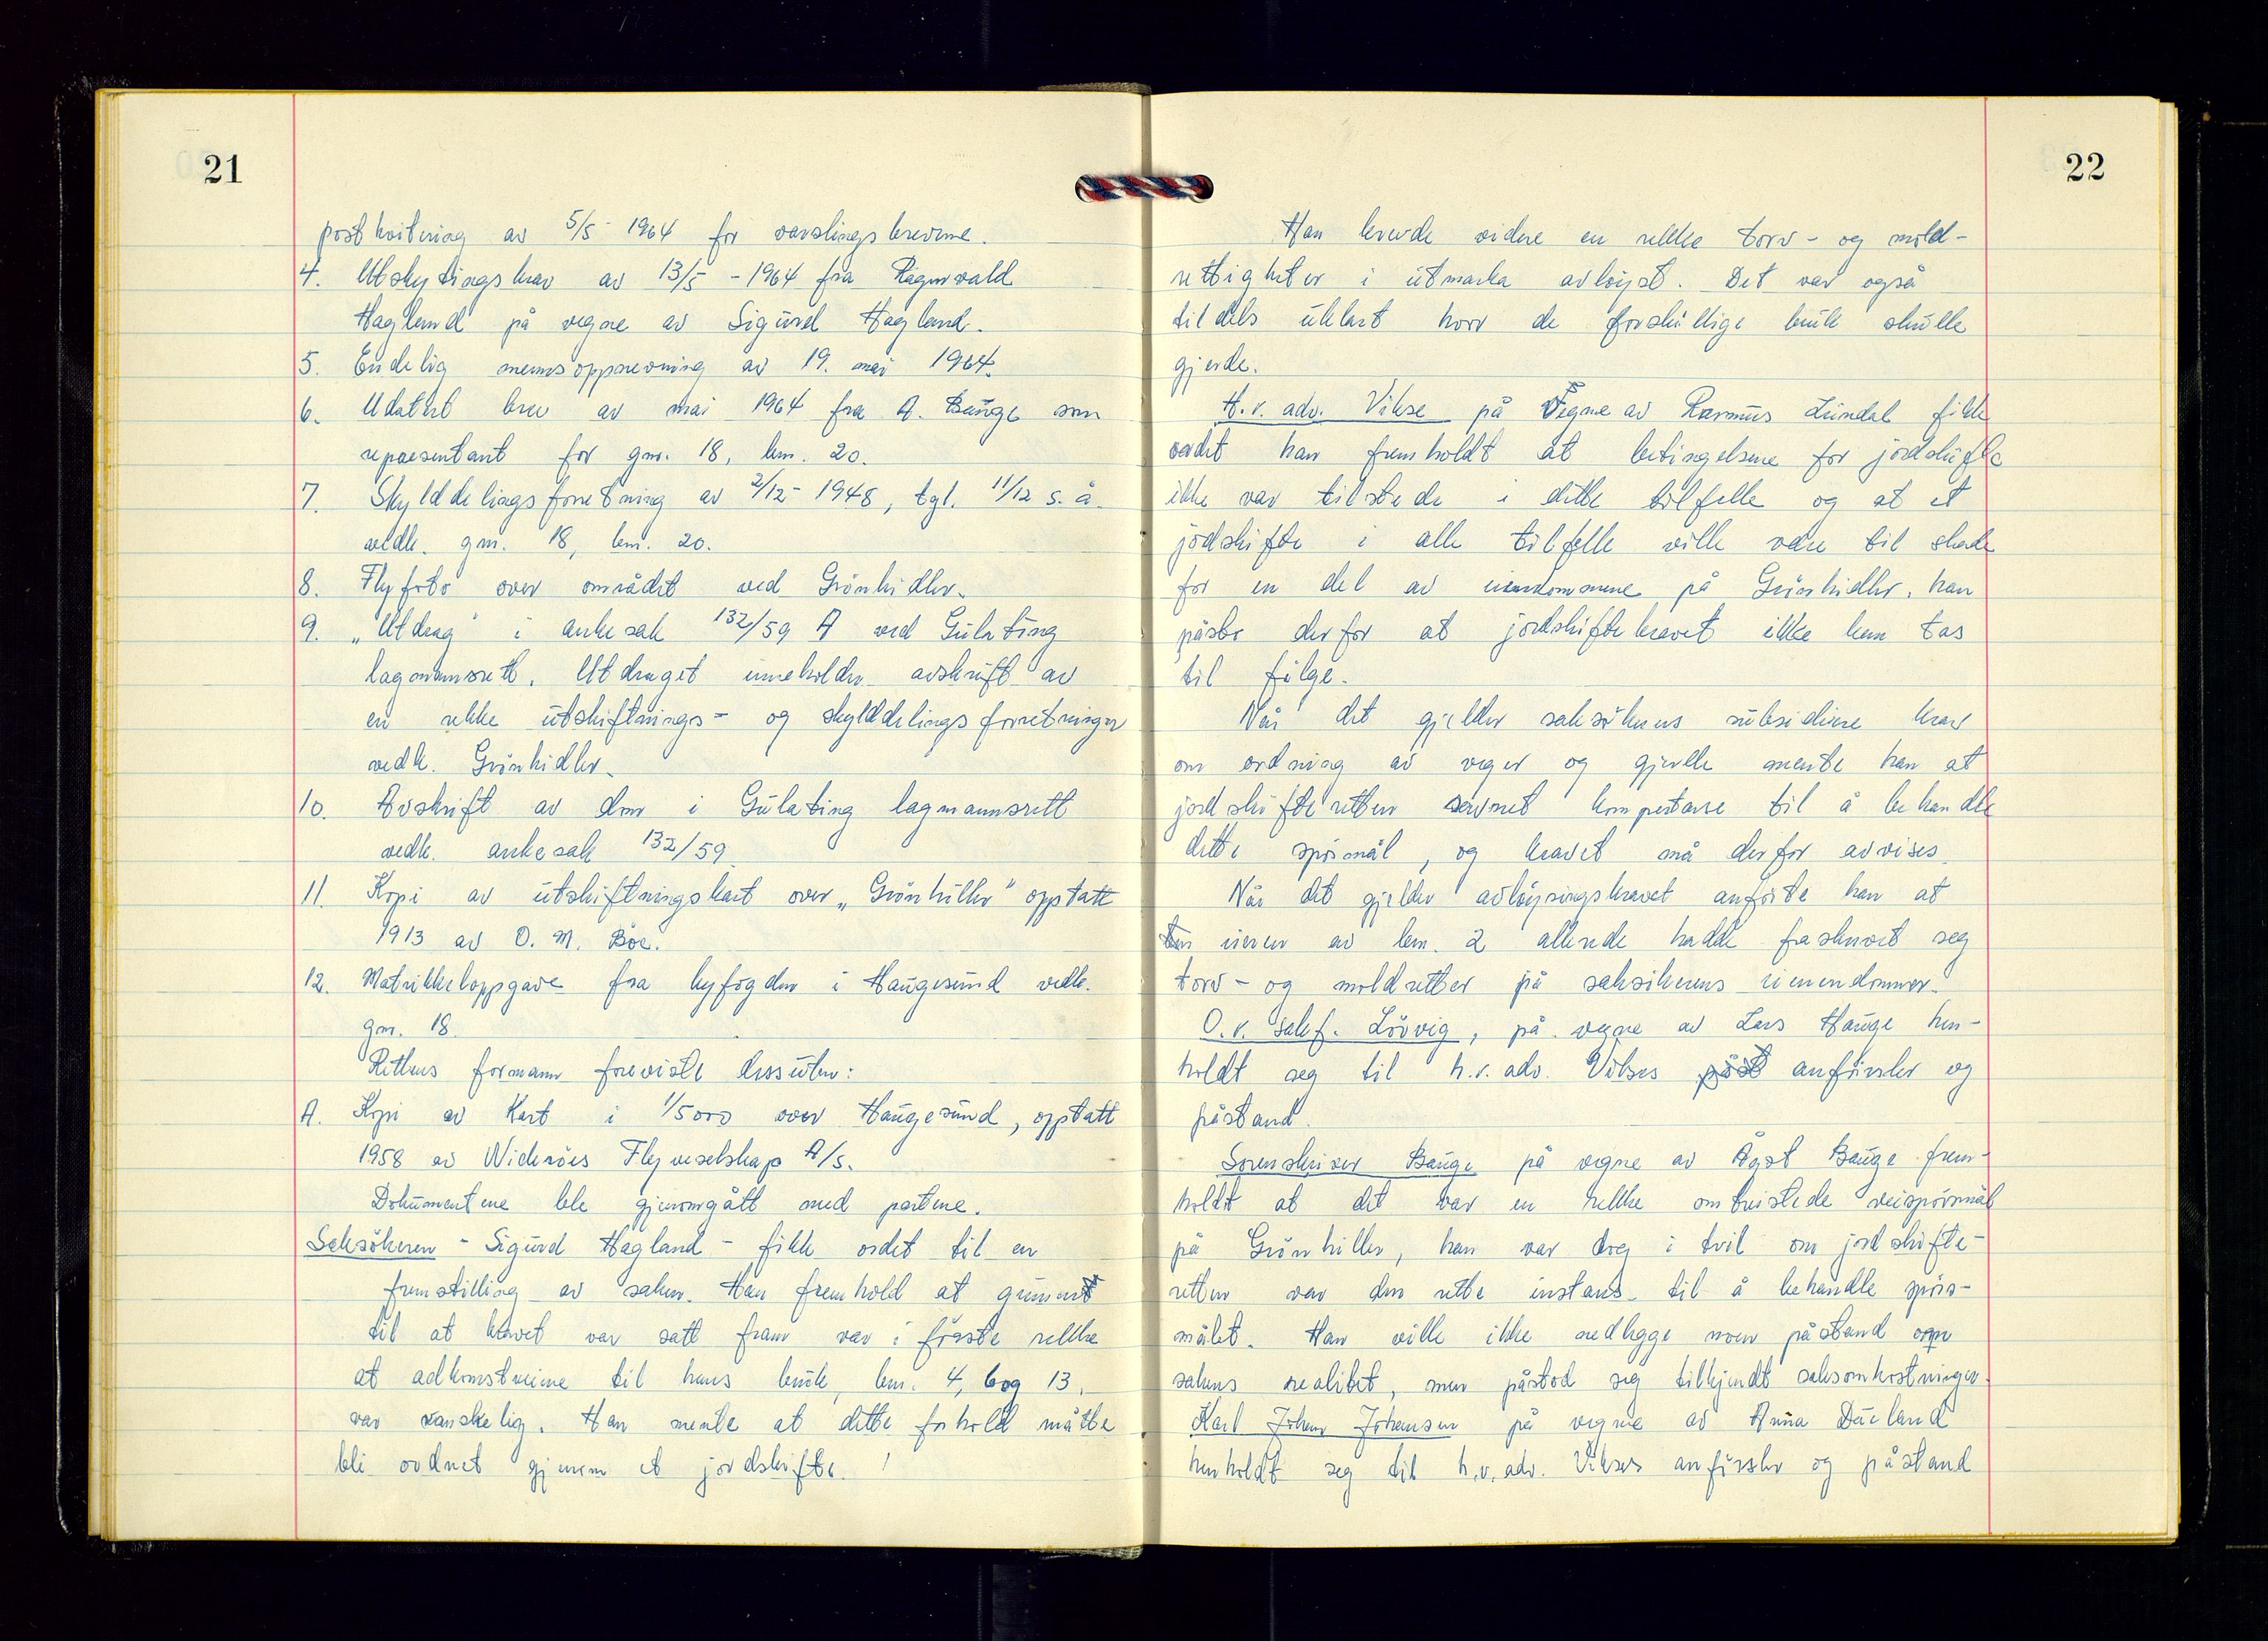 21
postkvitering av 5/5 1964 for varslingsbrevene.
4. Utskytingskrav av 13/5 - 1964 fra Ragnvald
Hagland på vegne av Sigurd Hagland.
5. Endelig mennsoppnevning av 19. mai 1964.
6. Udatert brev av mai 1964 fra A. Bauge som
repæsentant for gnr. 18, bnr. 20.
7. Skylddelingsforretning av 2/12- 1948, tgl. 11/12 s. å.
vedk. gnr. 18, bnr. 20.
8. Flyfoto over området ved Grönhidler.
9. „Utdrag" i ankesak 132/59 A ved Gulating
lagmannsrett. Utdraget inneholder avskrift av
en rekke utskiftnings- og skylddelingsforretninger
vedk. Grönhidler.
10. Avskrift av dom i Gulating lagmannsrett
vedk. ankesak 132/59.
11. Kopi av utskiftningskart over „Grönhiller" opptatt
1913 av O. M. Böe.
12. Matrikkeloppgave fra byfogden i Haugesund vedk.
gnr. 18.
Rettens formann foreviste dessuten:
A. Kopi av Kart i 1/5000 over Haugesund, opptatt
1958 av Wideröes Flyveselskap A/S.
Dokumentene ble gjenomgått med partene.
Saksökeren - Sigurd Hagland - fikk ordet til en
fremstilling av saken. Han fremhold at grunnen
til at kravet var satt fram var i förste rekke
at adkomstveiene til hans bruk, bnr. 4, 6 og 13,
var vanskelig. Han mente at dette forhold måtte
bli ordnet gjenom et jordskifte.
22
Han krevde videre en rekke torv- og mold-
rettigheter i utmarka avlöyst. Det var også
tildels uklart hvor de forskjellige bruk skulle
gjerde.
H.r. adv. Vikse på Vegne av Rasmus Lundal fikk
ordet han fremholdt at betingelsene for jordskifte
ikke var tilstede i dette tilfelle og at et
jordskifte i alle tilfelle ville være til skade
for en del av eiendommene på Grönhidler, han
påsto derfor at jordskiftekravet ikke kan tas
til fölge.
Når det gjelder saksökerens subsidiære krav
om ordning av veger og gjerde mente han at
jordskifteretten savnet kompetanse til å behandle
dette spörsmål, og kravet må derfor avvises.
Når det gjelder avlöysingskravet anförte han at
eieren av bnr. 2 allerede hadde fraskrevet seg
torv- og moldretter på saksökerens eienendommer.
O.r. sakf. Lövvig, på vegne av Lars Hauge hen-
holdt seg til h.r. adv. Vikses anförsler og
påstand.
Sorenskriver Bauge på vegne av Ågot Bauge frem-
holdt at det var en rekke omtvistede veispörsmål
på Grönhiller, han var dog i tvil om jordskifte-
retten var den rette instans til å behandle spörs-
målet. Han ville ikke nedlegge noen påstand om
sakens realitet, men påstod seg tilkjendt saksomkostninger.
Karl Johan Johansen på vegne av Anna Dueland
henholdt seg til h.r. adv. Vikses anförsler og påstand